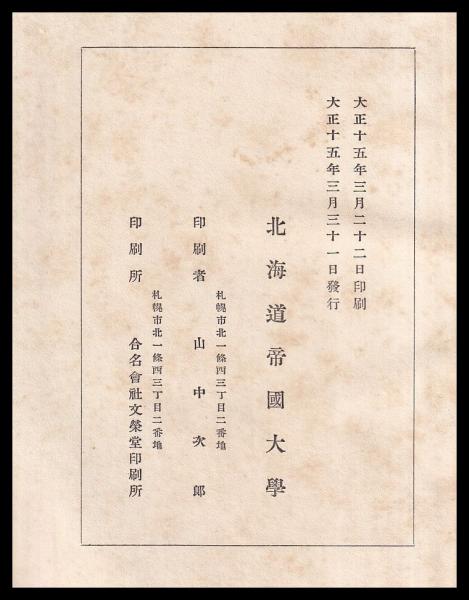 大正十五年三月二十二日印刷
大正十五年三月三十一日發行
北海道帝國大學
札幌市北一條西三丁目二番地
印刷者 山中次郎
札幌市北一條西三丁目二番地
印刷所 合名會社文榮堂印刷所